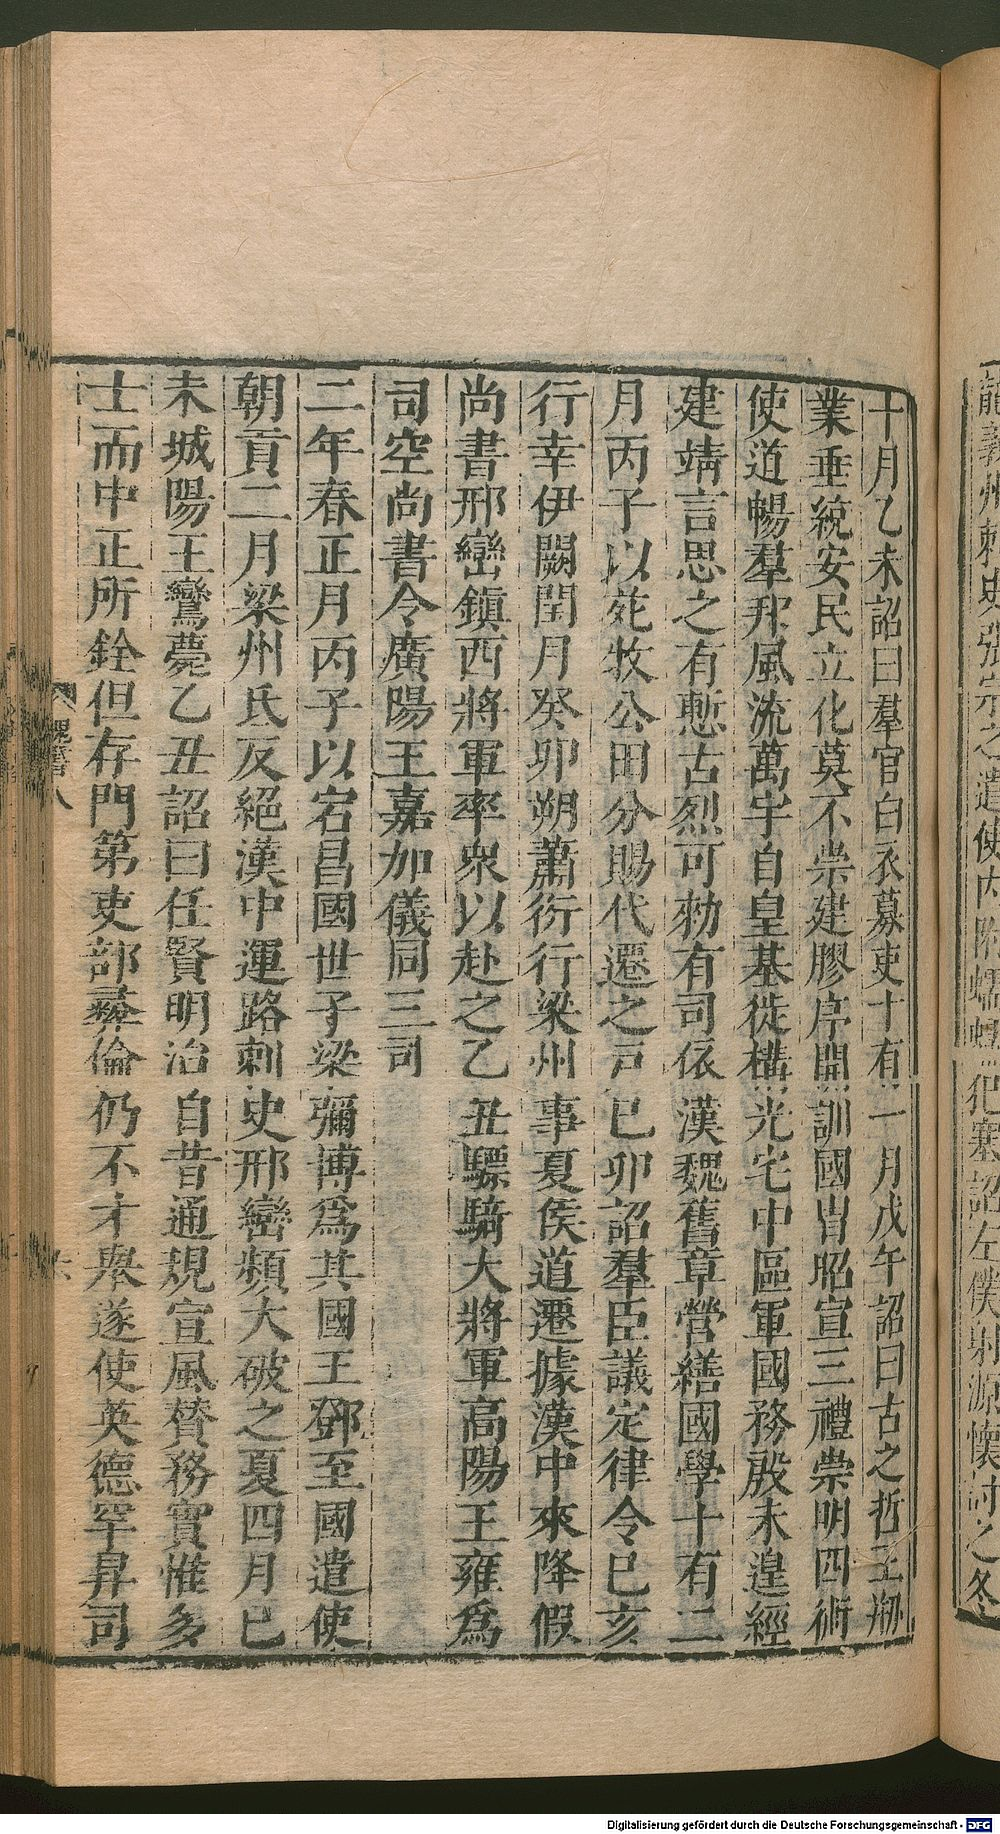 龍義州刺史張宗之遣使內附蠕蠕犯塞詔左僕射源懷討之冬
十月乙未詔曰羣官白衣募吏十有一月戊午詔曰古之哲王刱
業垂統安民立化莫不崇建膠序開訓國胄昭宣三禮崇明四術
使道暢羣邦風流萬宇自皇基徙構光宅中區軍國務殷未遑經
建靖言思之有慙古烈可勑有司依漢魏舊章營繕國學十有二
月丙子以苑牧公田分賜代遷之戶已卯詔羣臣議定律令已亥
行幸伊闕閏月癸卯朔蕭衍行梁州事夏侯道遷據漢中來降假
尚書邢巒鎮西將軍率衆以赴之乙丑驃騎大將軍高陽王雍爲
司空尚書令廣陽王嘉加儀同三司
二年春正月丙子以宕昌國世子梁彌博爲其國王鄧至國遣使
朝貢二月梁州氐反絕漢中運路刺史邢巒頻大破之夏四月已
未城陽王鸞薨乙丑詔曰任賢明治自昔通規宣風贊務實惟多
士而中正所銓但存門第吏部彝倫仍不才舉遂使英德罕昇司
魏書八
六
Digitalisierung gefördert durch die Deutsche Forschungsgemeinschaft - DFG